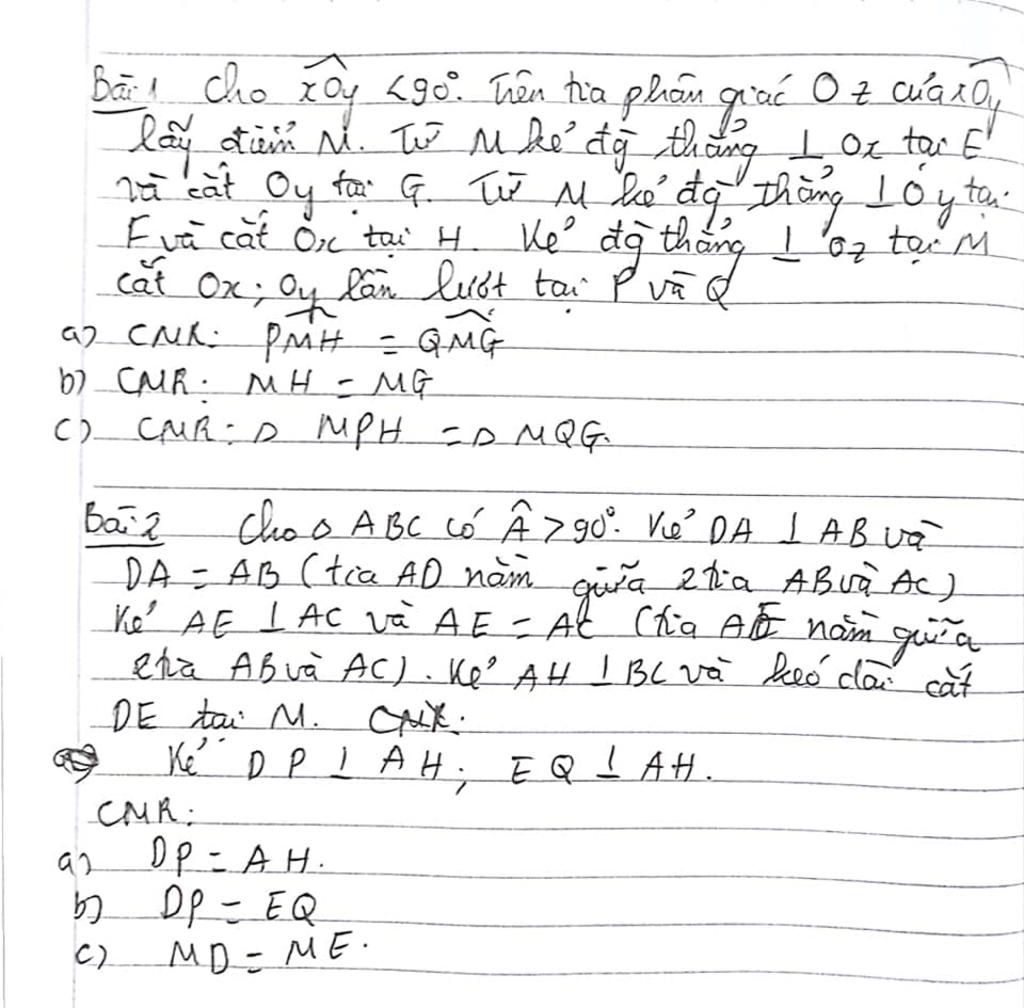 Bài 1 Cho xOy < 90°. Trên tia phân giác Oz của xOy
lấy điểm M. Từ M kẻ đg thẳng ⊥ Ox tại E
và cắt Oy tại G. Từ M kẻ đg thẳng ⊥ Oy tại
F và cắt Ox tại H. Kẻ đg thẳng ⊥ Oz tại M
cắt Ox; Oy lần lượt tại P và Q
a) CMR: PMH = QMG
b) CMR: MH = MG
c) CMR: Δ MPH = Δ MQG.
Bài 2 Cho Δ ABC có Â > 90°. Kẻ DA ⊥ AB và
DA = AB (tia AD nằm giữa 2 tia AB và AC)
Kẻ AE ⊥ AC và AE = AC (tia AE nằm giữa
2 tia AB và AC). Kẻ AH ⊥ BC và kéo dài cắt
DE tại M. CMR:
Kẻ DP ⊥ AH; EQ ⊥ AH.
CMR:
a) DP = AH.
b) DP = EQ
c) MD = ME.